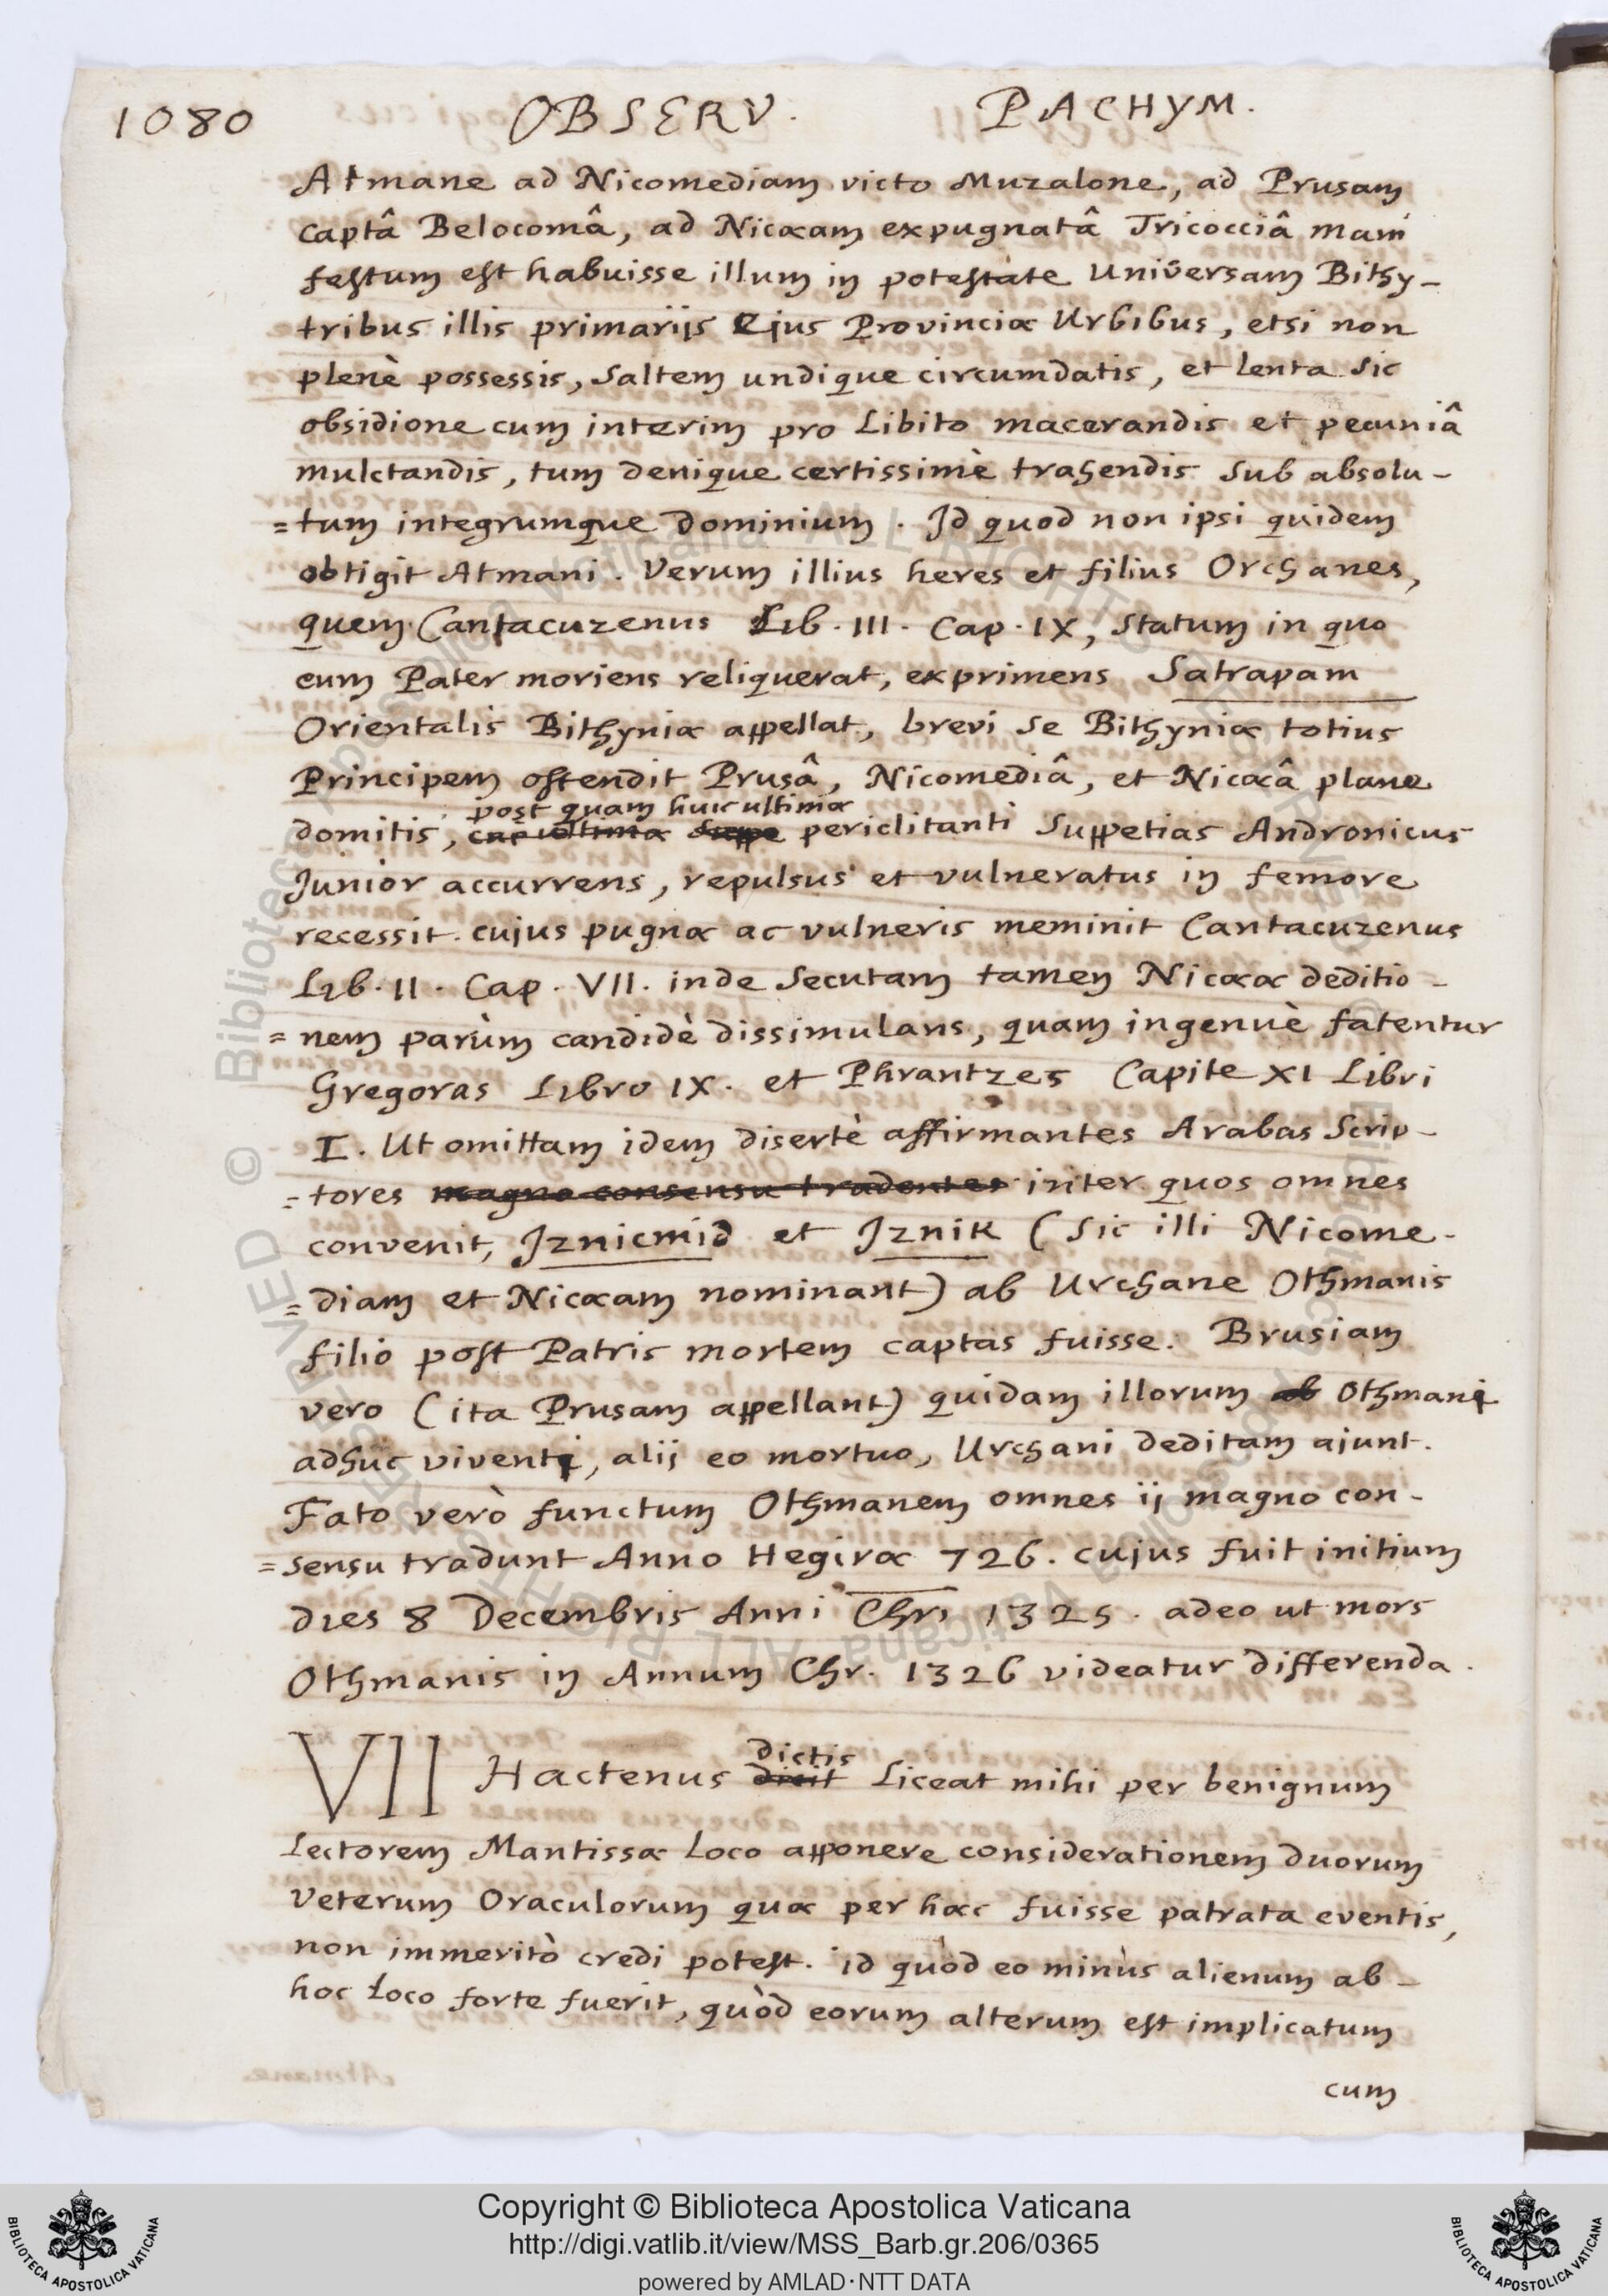 1080 OBSERV. PACHYM.
Atmane ad Nicomediam victo Muzalone, ad Prusam
captâ Belocomâ, ad Nicæam expugnatâ Tricocciâ mani
festum est habuisse illum in potestate Universam Bithy-
tribus illis primariis Ejus Provinciæ Urbibus, etsi non
plenè possessis, saltem undique circumdatis, et lenta sic
obsidione cum interim pro Libito macerandis et pecuniâ
mulctandis, tum denique certissimè trahendis sub absolu-
=tum integrumque dominium. Id quod non ipsi quidem
obtigit Atmani. Verum illius heres et filius Orchanes,
quem Cantacuzenus Lib. III. Cap. IX, statum in quo
eum Pater moriens reliquerat, exprimens Satrapam
Orientalis Bithyniæ appellat, brevi se Bithyniæ totius
Principem ostendit Prusâ, Nicomediâ, et Nicæâ plane
post quam huic ultimæ
domitis, cui ultimæ suppe periclitanti suppetias Andronicus
Junior accurrens, repulsus et vulneratus in femore
recessit. cujus pugnæ ac vulneris meminit Cantacuzenus
Lib. II. Cap. VII. inde secutam tamen Nicææ deditio-
=nem parùm candidè dissimulans, quam ingenuè fatentur
Gregoras Libro IX. et Phrantzes Capite XI Libri
I. Ut omittam idem disertè affirmantes Arabas Scrip-
=tores magno consensu tradentes inter quos omnes
convenit, Iznicmid et Iznik (sic illi Nicome-
=diam et Nicæam nominant) ab Urchane Othmanis
filio post Patris mortem captas fuisse. Brusiam
vero (ita Prusam appellant) quidam illorum ab Othmani
adhuc viventi, alij eo mortuo, Urchani deditam ajunt.
Fato verò functum Othmanem omnes ij magno con-
=sensu tradunt Anno Hegiræ 726. cujus fuit initium
dies 8 Decembris Anni Chri 1325. adeo ut mors
Othmanis in Annum Chr. 1326 videatur differenda.
dictis
VII Hactenus dicit Liceat mihi per benignum
Lectorem Mantissæ Loco apponere considerationem duorum
Veterum Oraculorum quæ per hæc fuisse patrata eventis,
non immeritò credi potest. id quòd eo minùs alienum ab-
hoc Loco forte fuerit, quòd eorum alterum est implicatum
cum
© Biblioteca Apostolica Vaticana ALL RIGHTS RESERVED
Copyright © Biblioteca Apostolica Vaticana
http://digi.vatlib.it/view/MSS_Barb.gr.206/0365
powered by AMLAD·NTT DATA
BIBLIOTECA APOSTOLICA VATICANA
BIBLIOTECA APOSTOLICA VATICANA